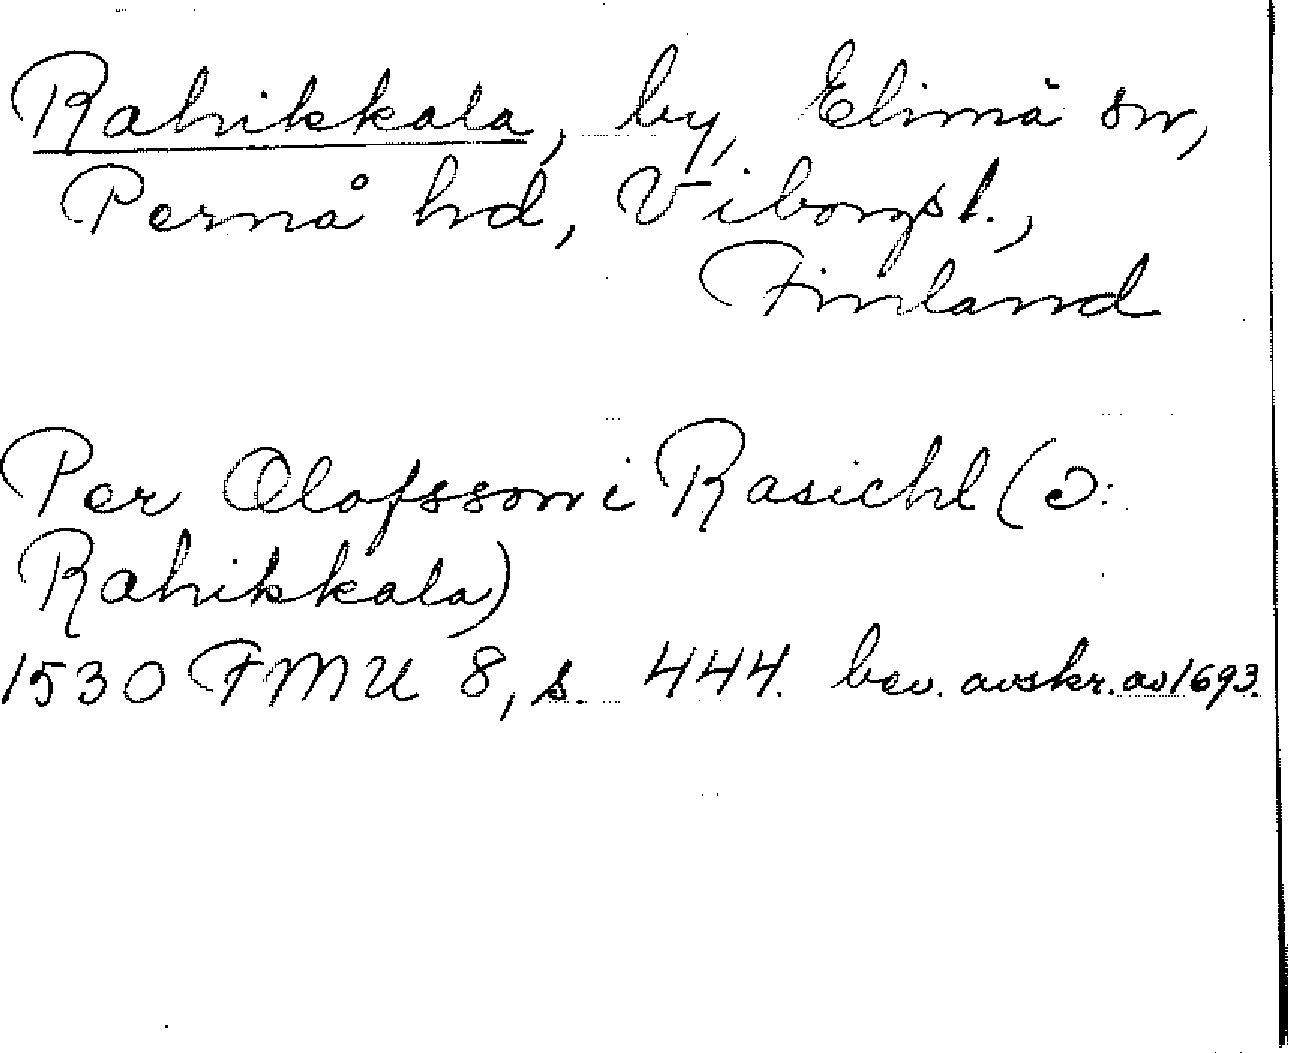 Rahikkala, by, Elimä sn,
Pernå hd, Viborgs l.,
Finland
Per Olofsson i Rasichl (ɔ:
Rahikkala)
1530 FMU 8, s. 444. bev. avskr. av 1693.